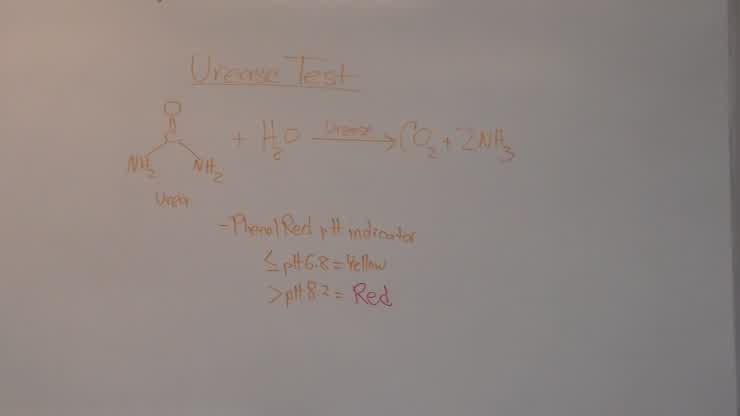 Urease Test
O
C
NH2 NH2
Urea
+ H2O Urease → CO2 + 2NH3
- Phenol Red pH indicator
≤ pH 6.8 = Yellow
> pH 8.2 = Red